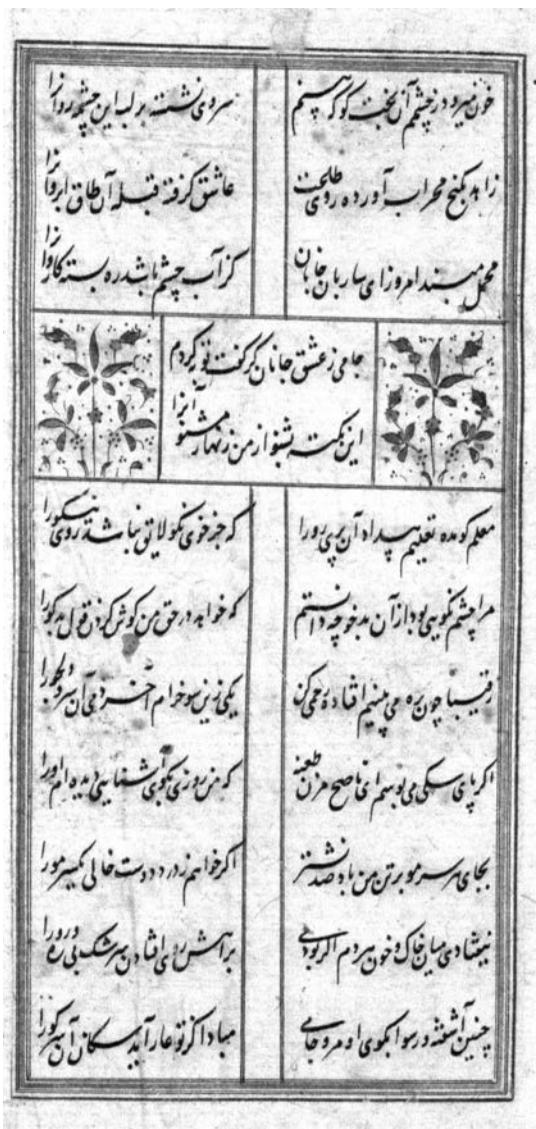 خون میرود ز چشمم آن بخت کو که بینم
سروی نشسته بر لب این چشمه روانرا
زاهد بکنج محراب آورده روی طاعت
عاشق گرفته قبله آن طاق ابروانرا
محمل مبند امروز ای ساربان جانان
کز آب چشم باشد ره بسته کاروانرا
جامی ز عشق جانان گر گفت توبه کردم
این نکته بشنو از من زنهار مشنو آنرا
معلم کو مده تعلیم بیداد آن پری رو را
که جز خوی نکو لایق نباشد روی نیکو را
مرا چشم نکویی بود از آن بدخو چه دانستم
که خواهد در حق من گوش کردن قول بدگو را
رقیبا چون بره می بینیم افتاده رحمی کن
یکی زین سو خرام آخر دمی آن سرو دلجو را
اگر پای سگی می بوسم ای ناصح مزن طعنه
که من روزی بکوی آشنایی دیده ام او را
بجای هر سر مو بر تن من باد صد نشتر
اگر خواهم ز درد دوست خالی یکسر مو را
نیفتادی میان خاک و خون مردم اگر بودی
براهش روی افتادن سرشک
چنین آشفته و رسوا بکوی او مرو جامی
مبادا کز تو عار آید سگان آن سر کو را